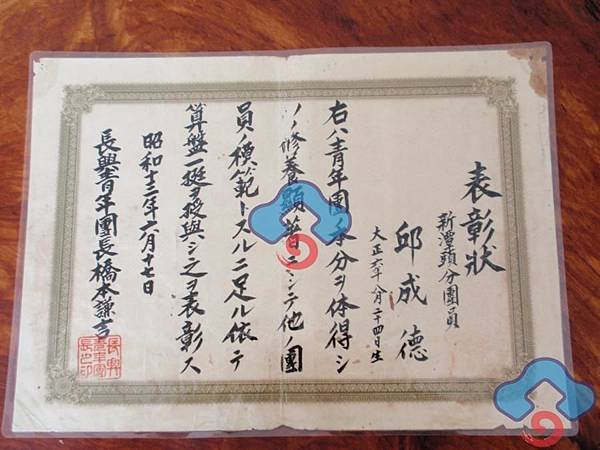 表彰狀
新潭頭分團員
邱成德
大正六年八月二十四日生
右ハ青年團本分ヲ体得シ
ソノ修養顯著ニシテ他ノ團
員ノ模範トスルニ足ル依テ
算盤一挺ヲ授與シ之ヲ表彰ス
昭和十二年六月十七日
長興青年團長橋本謙吉
長興
青年團
長之印